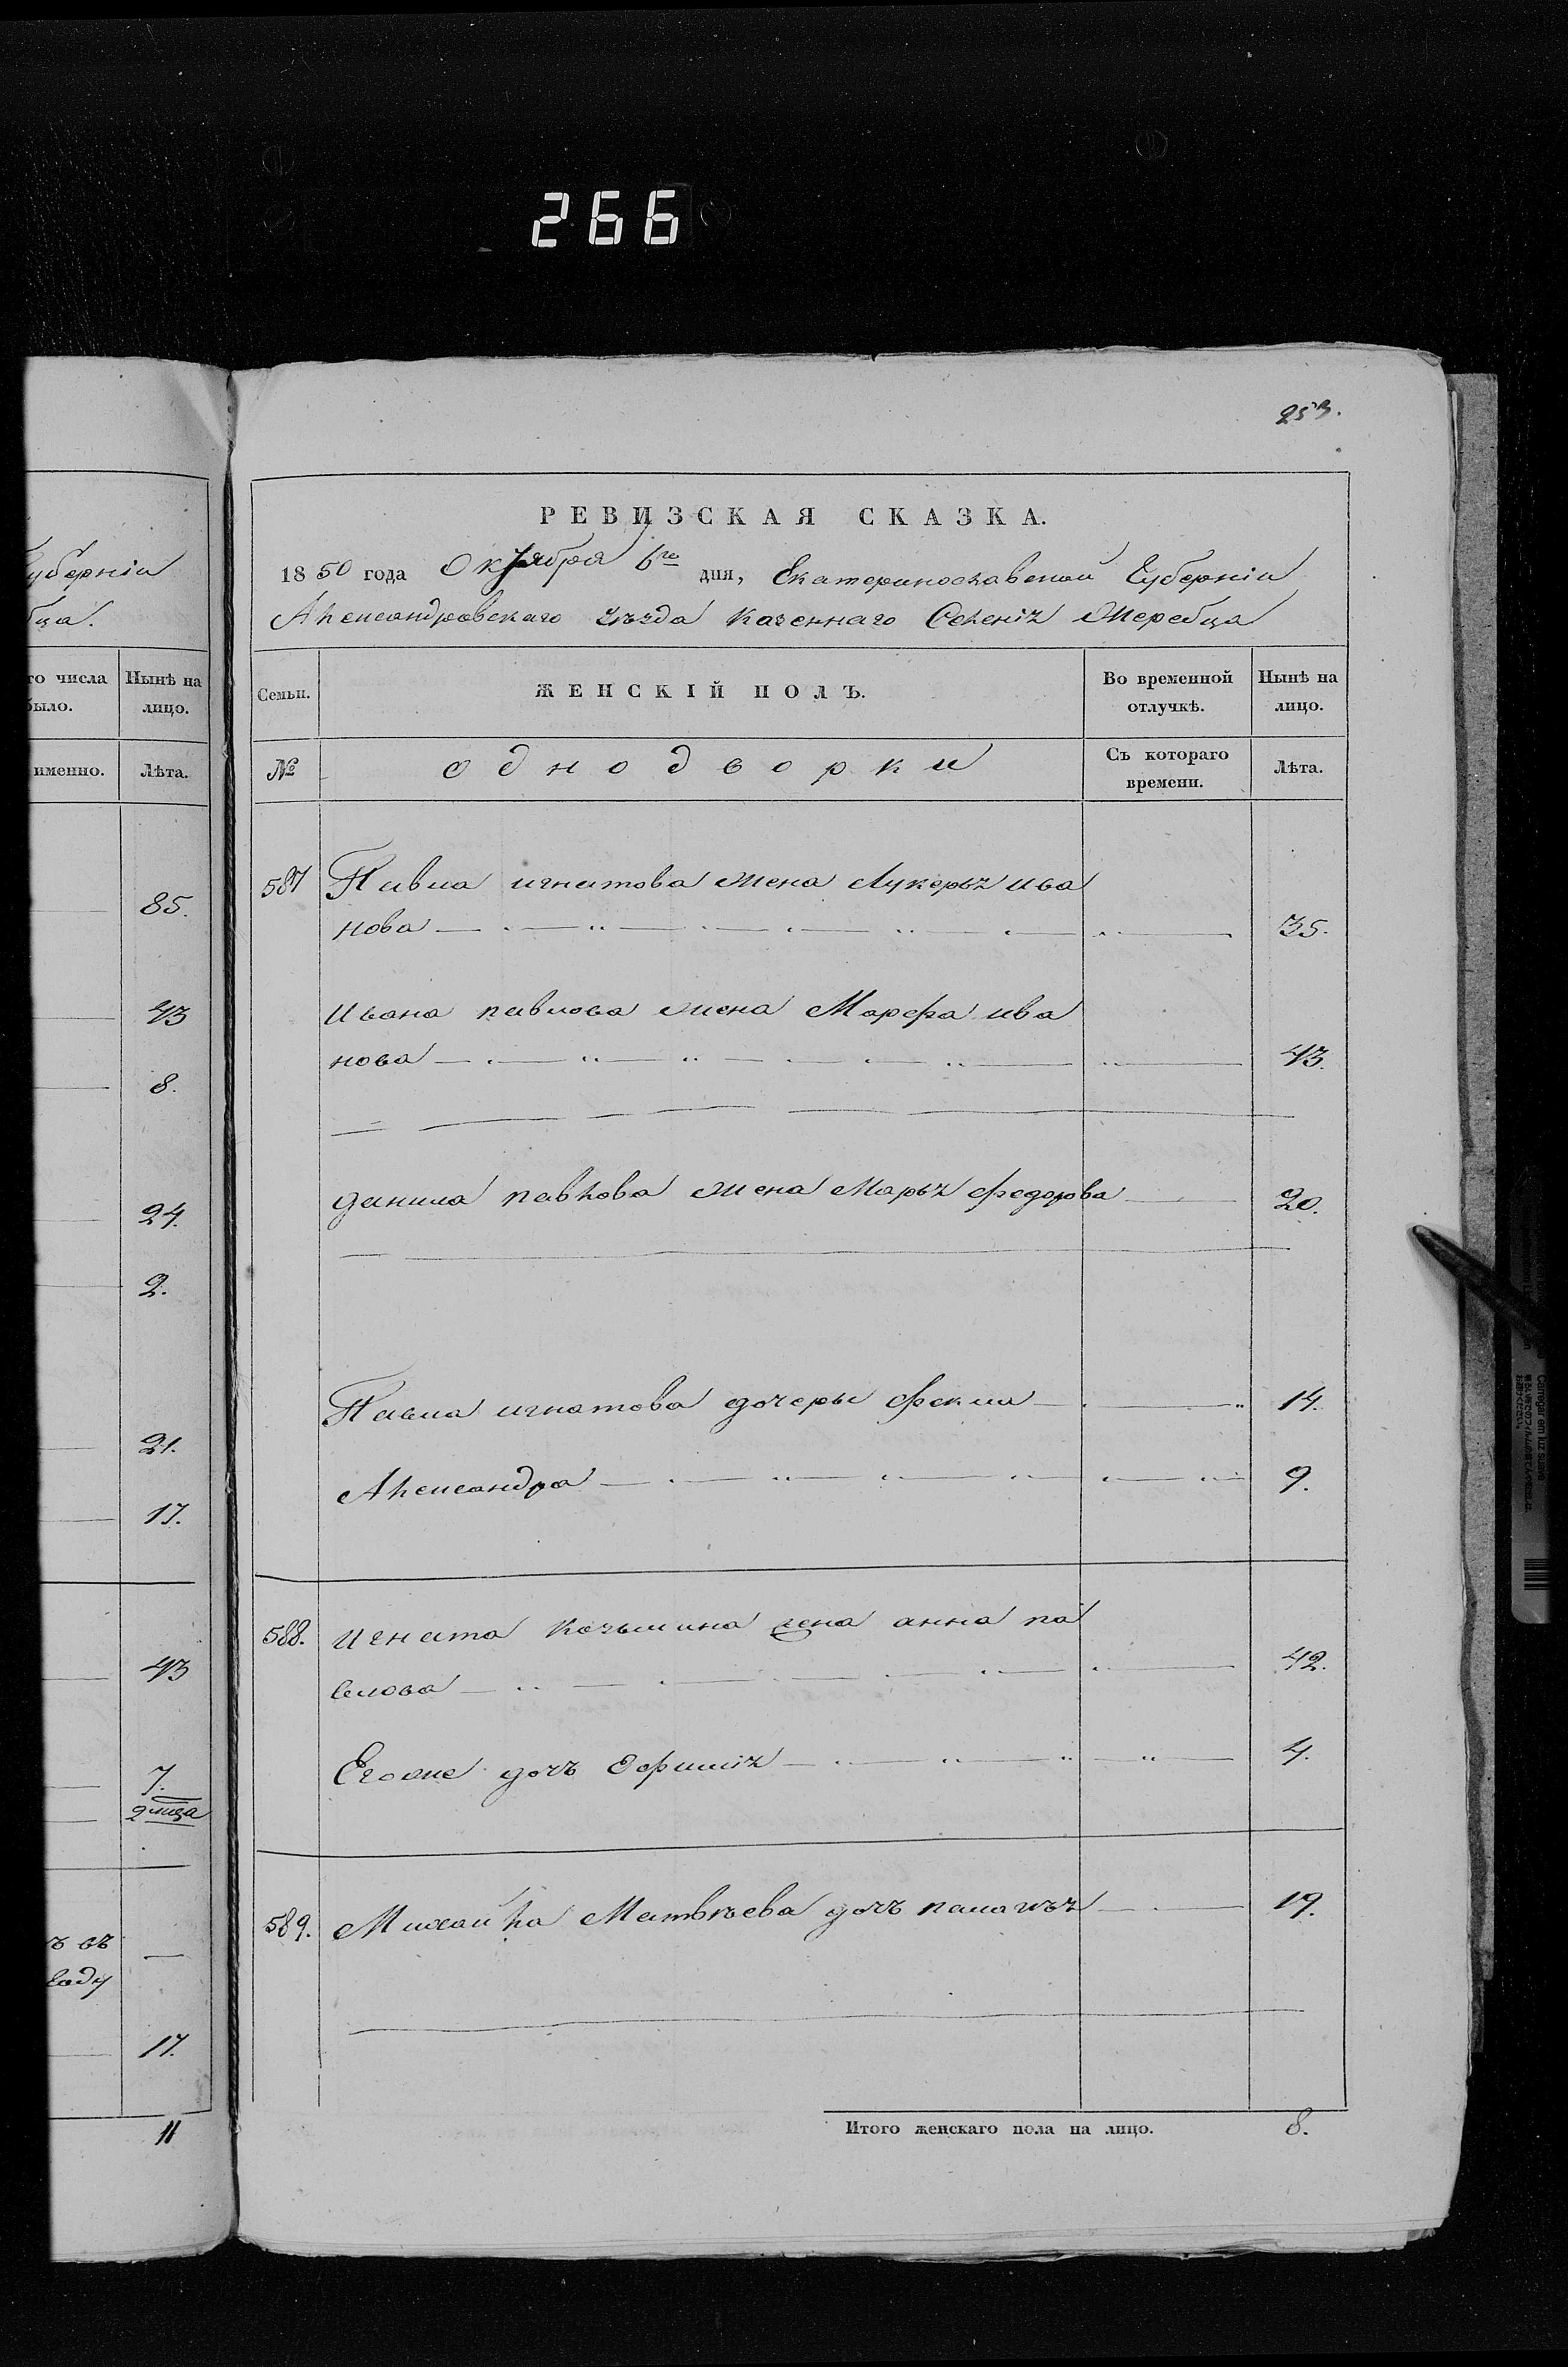 266
253.
губерніи
ца.
го числа
было.
Нынѣ на
лицо.
именно.
Лѣта.
85.
43
8.
24.
2.
21.
17.
43
7.
2 лица
ъ въ
году
17.
11
РЕВИЗСКАЯ СКАЗКА.
1850 года Октября 6го дня, Екатеринославской Губерніи
Александровскаго уѣзда Казеннаго Селенія Жеребца
Семьи.
ЖЕНСКІЙ ПОЛЪ.
Во временной
отлучкѣ.
Нынѣ на
лицо.
№
Однодворки
Съ котораго
времени.
Лѣта.
587 Павла игнатова жена Лукерья ива
нова 35.
Ивана павлова жена Марфа ива
нова 43.
данила павлова жена Марья федорова 20.
Павла игнатова дочеры фекла 14.
Александра 9.
588. Игната Козьмина жена анна па
влова 42.
Егоже дочь Эфимія 4.
589. Михайла Матвѣева дочь палагѣя 19.
Итого женскаго пола на лицо. 8.